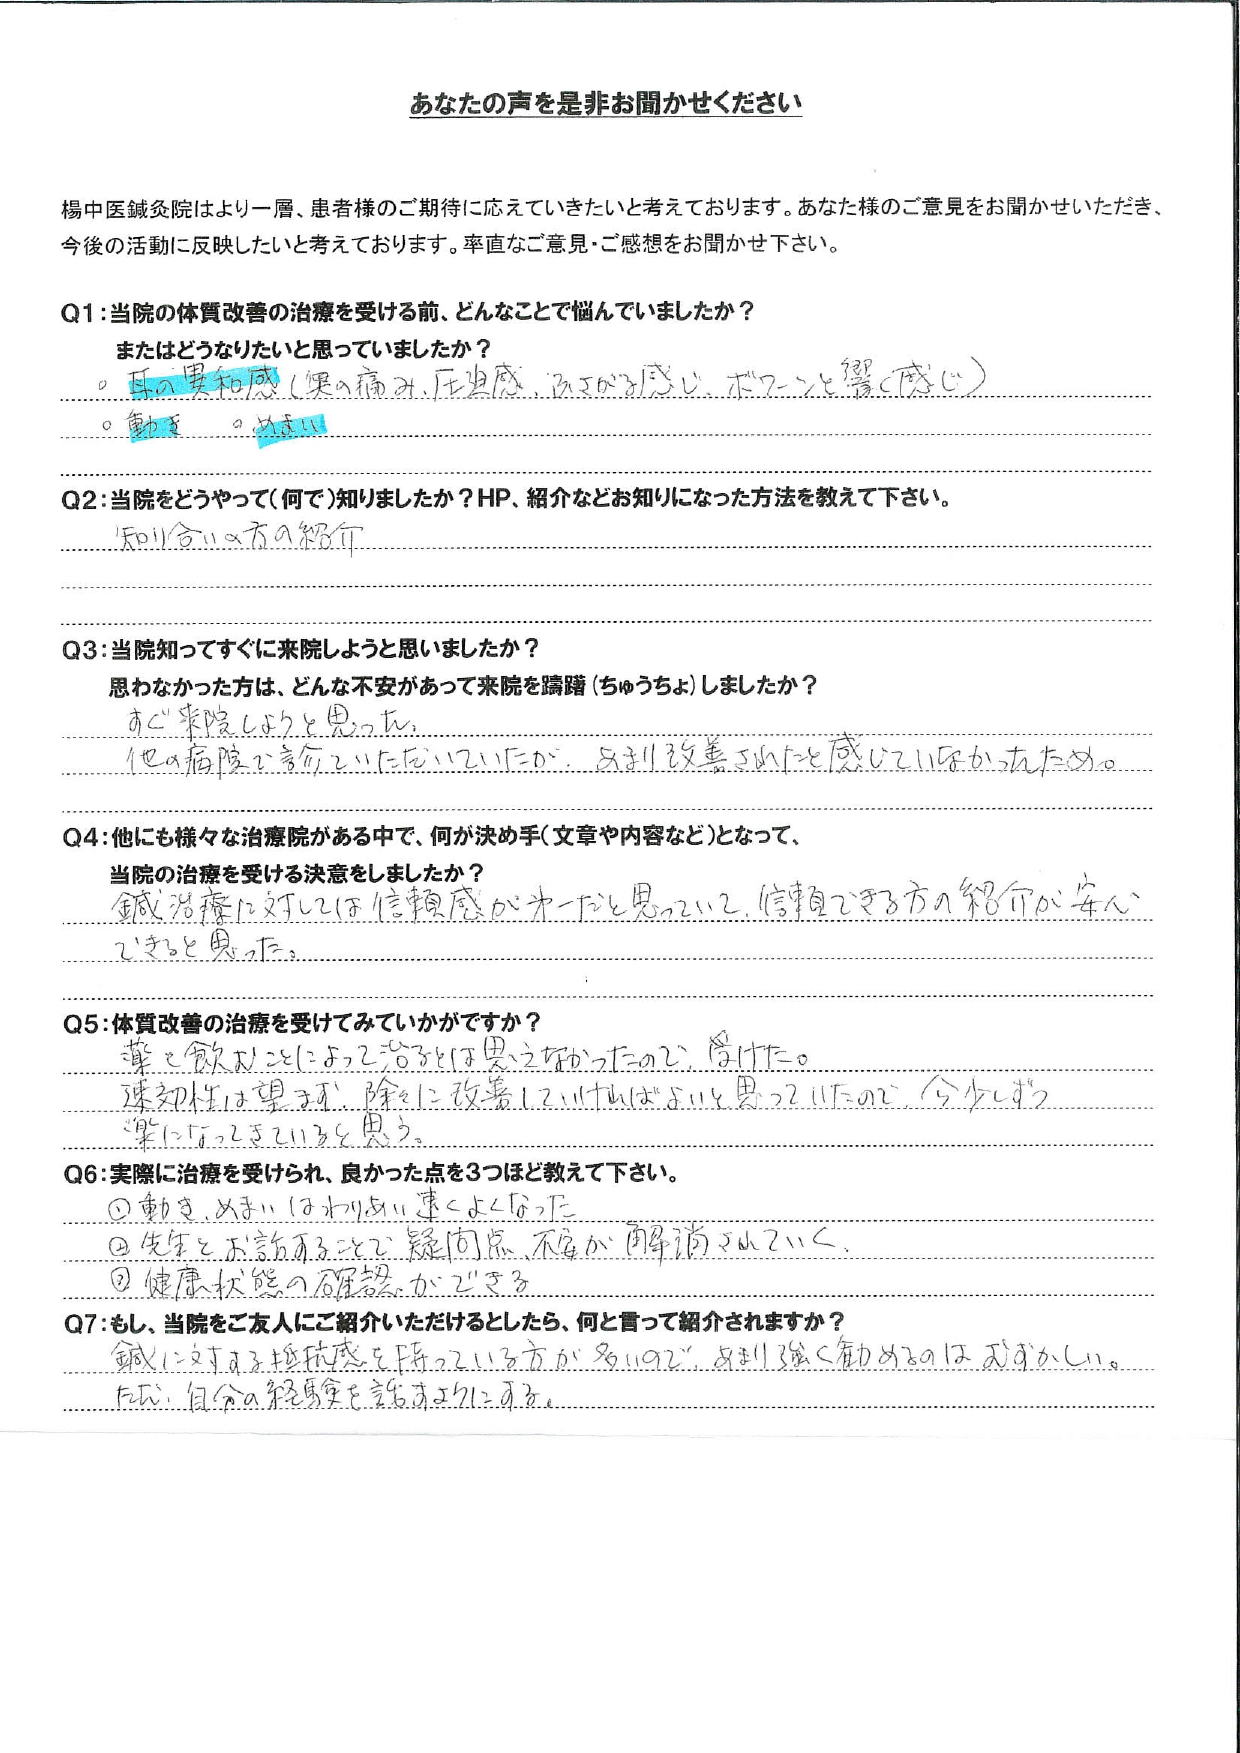 あなたの声を是非お聞かせください
楊中医鍼灸院はより一層、患者様のご期待に応えていきたいと考えております。あなた様のご意見をお聞かせいただき、
今後の活動に反映したいと考えております。率直なご意見・ご感想をお聞かせ下さい。
Q1:当院の体質改善の治療を受ける前、どんなことで悩んでいましたか?
またはどうなりたいと思っていましたか?
○ 耳の異和感(奥の痛み、圧迫感、ふさがる感じ、ボワーンと響く感じ)
○ 動き ○ めまい
Q2:当院をどうやって(何で)知りましたか?HP、紹介などお知りになった方法を教えて下さい。
知り合いの方の紹介
Q3:当院知ってすぐに来院しようと思いましたか?
思わなかった方は、どんな不安があって来院を躊躇(ちゅうちょ)しましたか?
すぐ来院しようと思った。
他の病院で診ていただいていたが、あまり改善されたと感じていなかったため。
Q4:他にも様々な治療院がある中で、何が決め手(文章や内容など)となって、
当院の治療を受ける決意をしましたか?
鍼治療に対しては信頼感が第一だと思っていて、信頼できる方の紹介が安心
できると思った。
Q5:体質改善の治療を受けてみていかがですか?
薬を飲むことによって治るとは思えなかったので、受けた。
速効性は望まず、除々に改善していければよいと思っていたので、今少しずつ
楽になってきていると思う。
Q6:実際に治療を受けられ、良かった点を3つほど教えて下さい。
① 動き、めまいはわりあい速くよくなった
② 先生とお話することで疑問点、不安が解消されていく、
③ 健康状態の確認ができる
Q7:もし、当院をご友人にご紹介いただけるとしたら、何と言って紹介されますか?
鍼に対する抵抗感を持っている方が多いので、あまり強く勧めるのはむずかしい。
ただ、自分の経験を話すようにする。